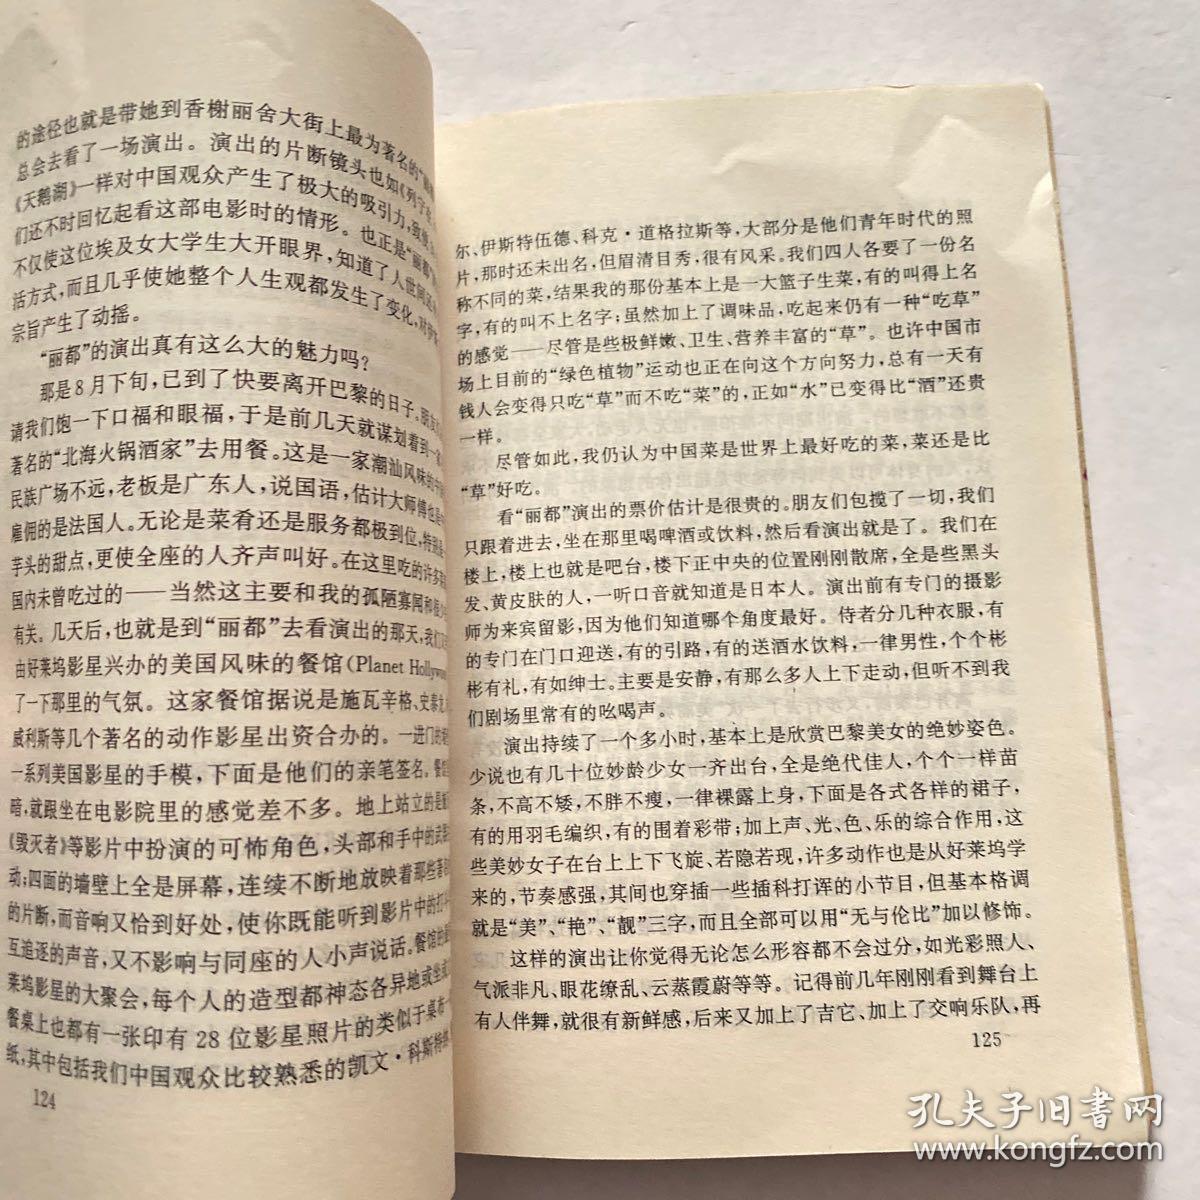 的途径也就是带她到香榭丽舍大街上最为著名的“丽
总会去看了一场演出。演出的片断镜头也如《列宁在
《天鹅湖》一样对中国观众产生了极大的吸引力,致使
们还不时回忆起看这部电影时的情形。也正是“丽都”
不仅使这位埃及女大学生大开眼界,知道了人世间还
活方式,而且几乎使她整个人生观都发生了变化,对
宗旨产生了动摇。
“丽都”的演出真有这么大的魅力吗?
那是8月下旬,已到了快要离开巴黎的日子。朋友
请我们饱一下口福和眼福,于是前几天就谋划着到一家
著名的“北海火锅酒家”去用餐。这是一家潮汕风味的
民族广场不远,老板是广东人,说国语,估计大师傅也是
雇佣的是法国人。无论是菜肴还是服务都极到位,特别是
芋头的甜点,更使全座的人齐声叫好。在这里吃的许多
国内未曾吃过的——当然这主要和我的孤陋寡闻和
有关。几天后,也就是到“丽都”去看演出的那天,我们
由好莱坞影星兴办的美国风味的餐馆(Planet Hollywo
了一下那里的气氛。这家餐馆据说是施瓦辛格、史泰龙
威利斯等几个著名的动作影星出资合办的。一进门
一系列美国影星的手模,下面是他们的亲笔签名。餐馆
暗,就跟坐在电影院里的感觉差不多。地上站立的是
《毁灭者》等影片中扮演的可怖角色,头部和手中的武
动;四面的墙壁上全是屏幕,连续不断地放映着那些著
的片断,而音响又恰到好处,使你既能听到影片中的打斗
互追逐的声音,又不影响与同座的人小声说话。餐馆的
莱坞影星的大聚会,每个人的造型都神态各异地或坐或
餐桌上也都有一张印有28位影星照片的类似于桌布
纸,其中包括我们中国观众比较熟悉的凯文·科斯特
124
尔、伊斯特伍德、科克·道格拉斯等,大部分是他们青年时代的照
片,那时还未出名,但眉清目秀,很有风采。我们四人各要了一份名
称不同的菜,结果我的那份基本上是一大篮子生菜,有的叫得上名
字,有的叫不上名字;虽然加上了调味品,吃起来仍有一种“吃草”
的感觉——尽管是些极鲜嫩、卫生、营养丰富的“草”。也许中国市
场上目前的“绿色植物”运动也正在向这个方向努力,总有一天有
钱人会变得只吃“草”而不吃“菜”的,正如“水”已变得比“酒”还贵
一样。
尽管如此,我仍认为中国菜是世界上最好吃的菜,菜还是比
“草”好吃。
看“丽都”演出的票价估计是很贵的。朋友们包揽了一切,我们
只跟着进去,坐在那里喝啤酒或饮料,然后看演出就是了。我们在
楼上,楼上也就是吧台,楼下正中央的位置刚刚散席,全是些黑头
发、黄皮肤的人,一听口音就知道是日本人。演出前有专门的摄影
师为来宾留影,因为他们知道哪个角度最好。侍者分几种衣服,有
的专门在门口迎送,有的引路,有的送酒水饮料,一律男性,个个彬
彬有礼,有如绅士。主要是安静,有那么多人上下走动,但听不到我
们剧场里常有的吆喝声。
演出持续了一个多小时,基本上是欣赏巴黎美女的绝妙姿色。
少说也有几十位妙龄少女一齐出台,全是绝代佳人,个个一样苗
条,不高不矮,不胖不瘦,一律裸露上身,下面是各式各样的裙子,
有的用羽毛编织,有的围着彩带;加上声、光、色、乐的综合作用,这
些美妙女子在台上上下飞旋、若隐若现,许多动作也是从好莱坞学
来的,节奏感强,其间也穿插一些插科打诨的小节目,但基本格调
就是“美”、“艳”、“靓”三字,而且全部可以用“无与伦比”加以修饰。
这样的演出让你觉得无论怎么形容都不会过分,如光彩照人、
气派非凡、眼花缭乱、云蒸霞蔚等等。记得前几年刚刚看到舞台上
有人伴舞,就很有新鲜感,后来又加上了吉它、加上了交响乐队,再
125
孔夫子旧书网
www.kongfz.com